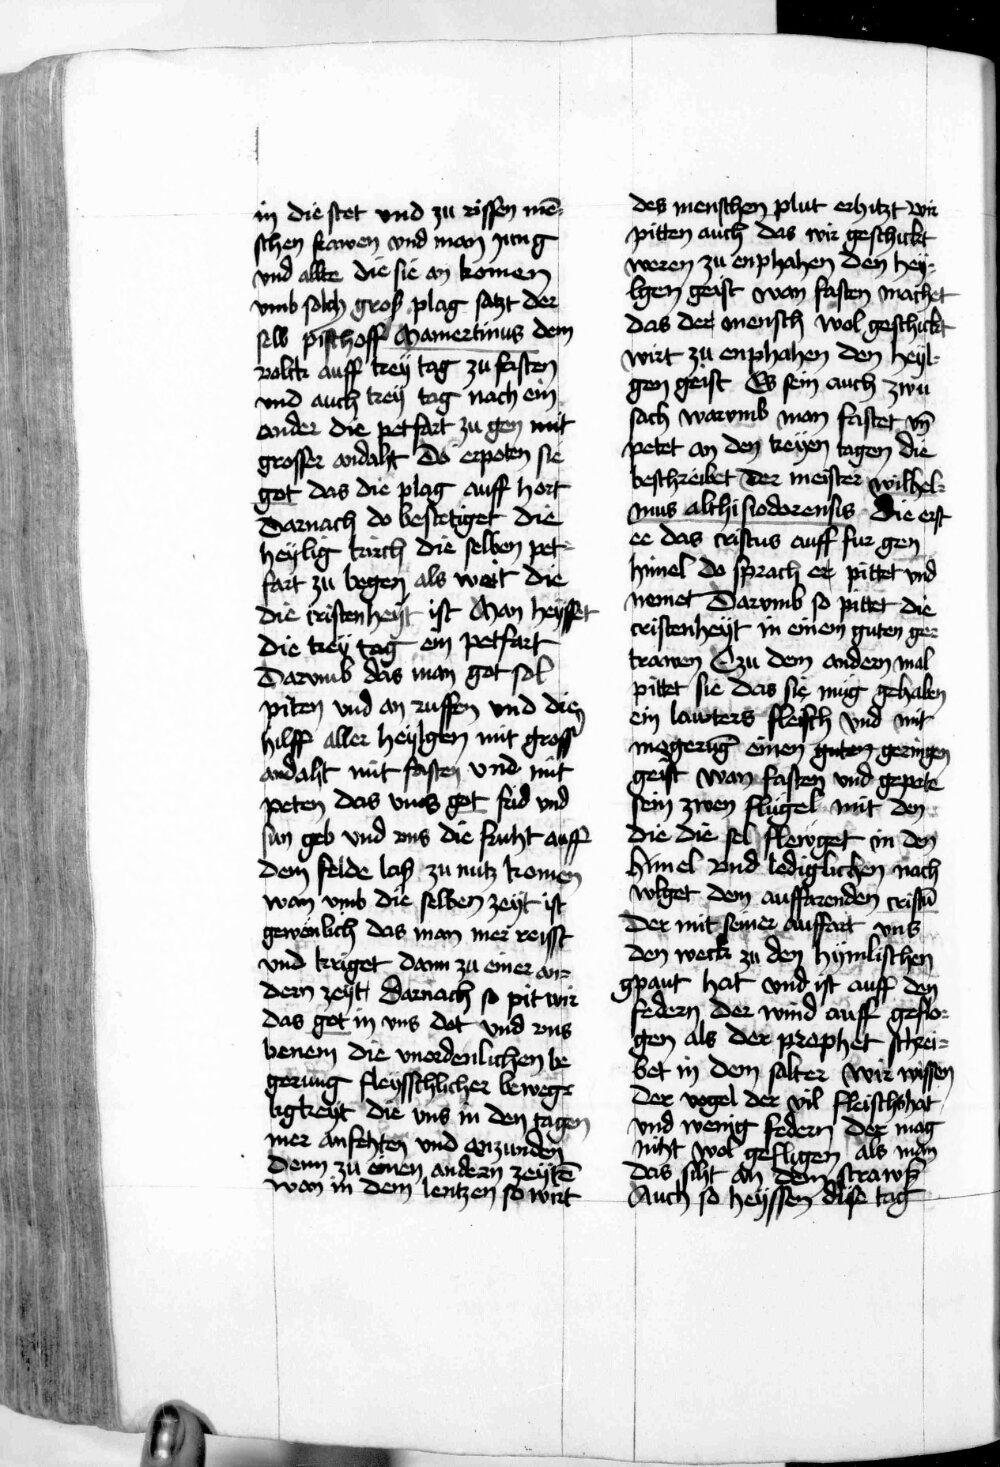 in die stet vnd zu rissen mē-
schen frawen vnd man jung
vnd allte die sie an komen
vmb solch groß plag satzt der
selb pischoff Mamertinus dem
volck auff trey tag zu fasten
vnd auch trey tag nach ein
ander die petfart zu gen mit
grosser andaht Do erpoten sie
got das die plag auff hort
Darnach do bestetiget die
heylig kirch die selben pet-
fart zu begen als weit die
die cristenheyt ist Man heysset
die trey tag ein petfart
Darvmb das man got sol
piten vnd an ruffen vnd die
hilff aller heylgen mit grosser
andaht mit fasten vnd mit
peten das vns got frid vnd
sun geb vnd vns die fruht auff
dem felde laß zu nutz komen
wan vmb die selben zeyt ist
gewenlich das man mer reisst
vnd krieget dann zu einer an-
dern zeyt Darnach so pit wir
das got in vns dot vnd vns
benem die vnordenlichen be
gerung fleysschlicher beweg-
ligkeyt die vns in den tagen
mer anfehten vnd anzunden
Denn zu einen andern zeytē
wan in dem lentzen so wirt
des menschen plut erhitzt wir
pitten auch das wir geschickt
weren zu enphahen den hey-
lgen geist wan fasten machet
das der mensch wol geschickt
wirt zu enphahen den heyl-
gen geist Es sein auch zwu
sach warvmb man fastet vn̄
petet an den treyen tagen die
beschreibet der meister wilhel-
mus althisiodorensis Die erst
ee das cristus auff fur gen
himel do sprach er pittet vnd
nemet Darvmb so pittet die
cristenheyt in einem guten ge-
trawen Czu dem andern mal
pittet sie das sie mug gehaben
ein lauters fleisch vnd mit
mogerūg einen guten geringen
geist wan fasten vnd gepete
sein zwen flugel mit den
die die sel flewget in den
himel vnd lediglichen nach
volget dem auffarenden cristū
Der mit seiner auffart vns
den weck zu den hymlischen
gpaut hat vnd ist auff den
federn der wind auff geflo-
gen als der prophet schrei-
bet in dem salter wir wissen
der vogel der vil fleischs hat
vnd wenig federn der mag
niht wol gefligen als man
das siht an dem strawß
Auch so heyssen dise tag